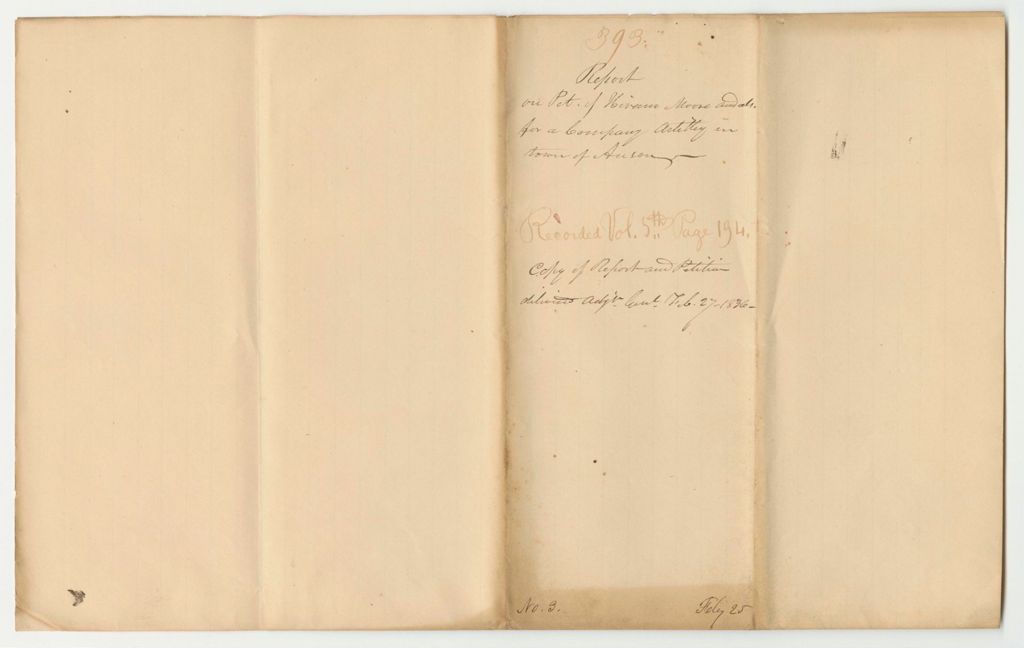 393.
Report
on Pet. of Hiram Moore and als.
for a Company Artilley in
town of Anson
Recorded Vol. 5th Page 194.
Copy of Report and Petition
delivered Adjt. Genl. Feb. 27. 1836
No. 3.
Feby 25